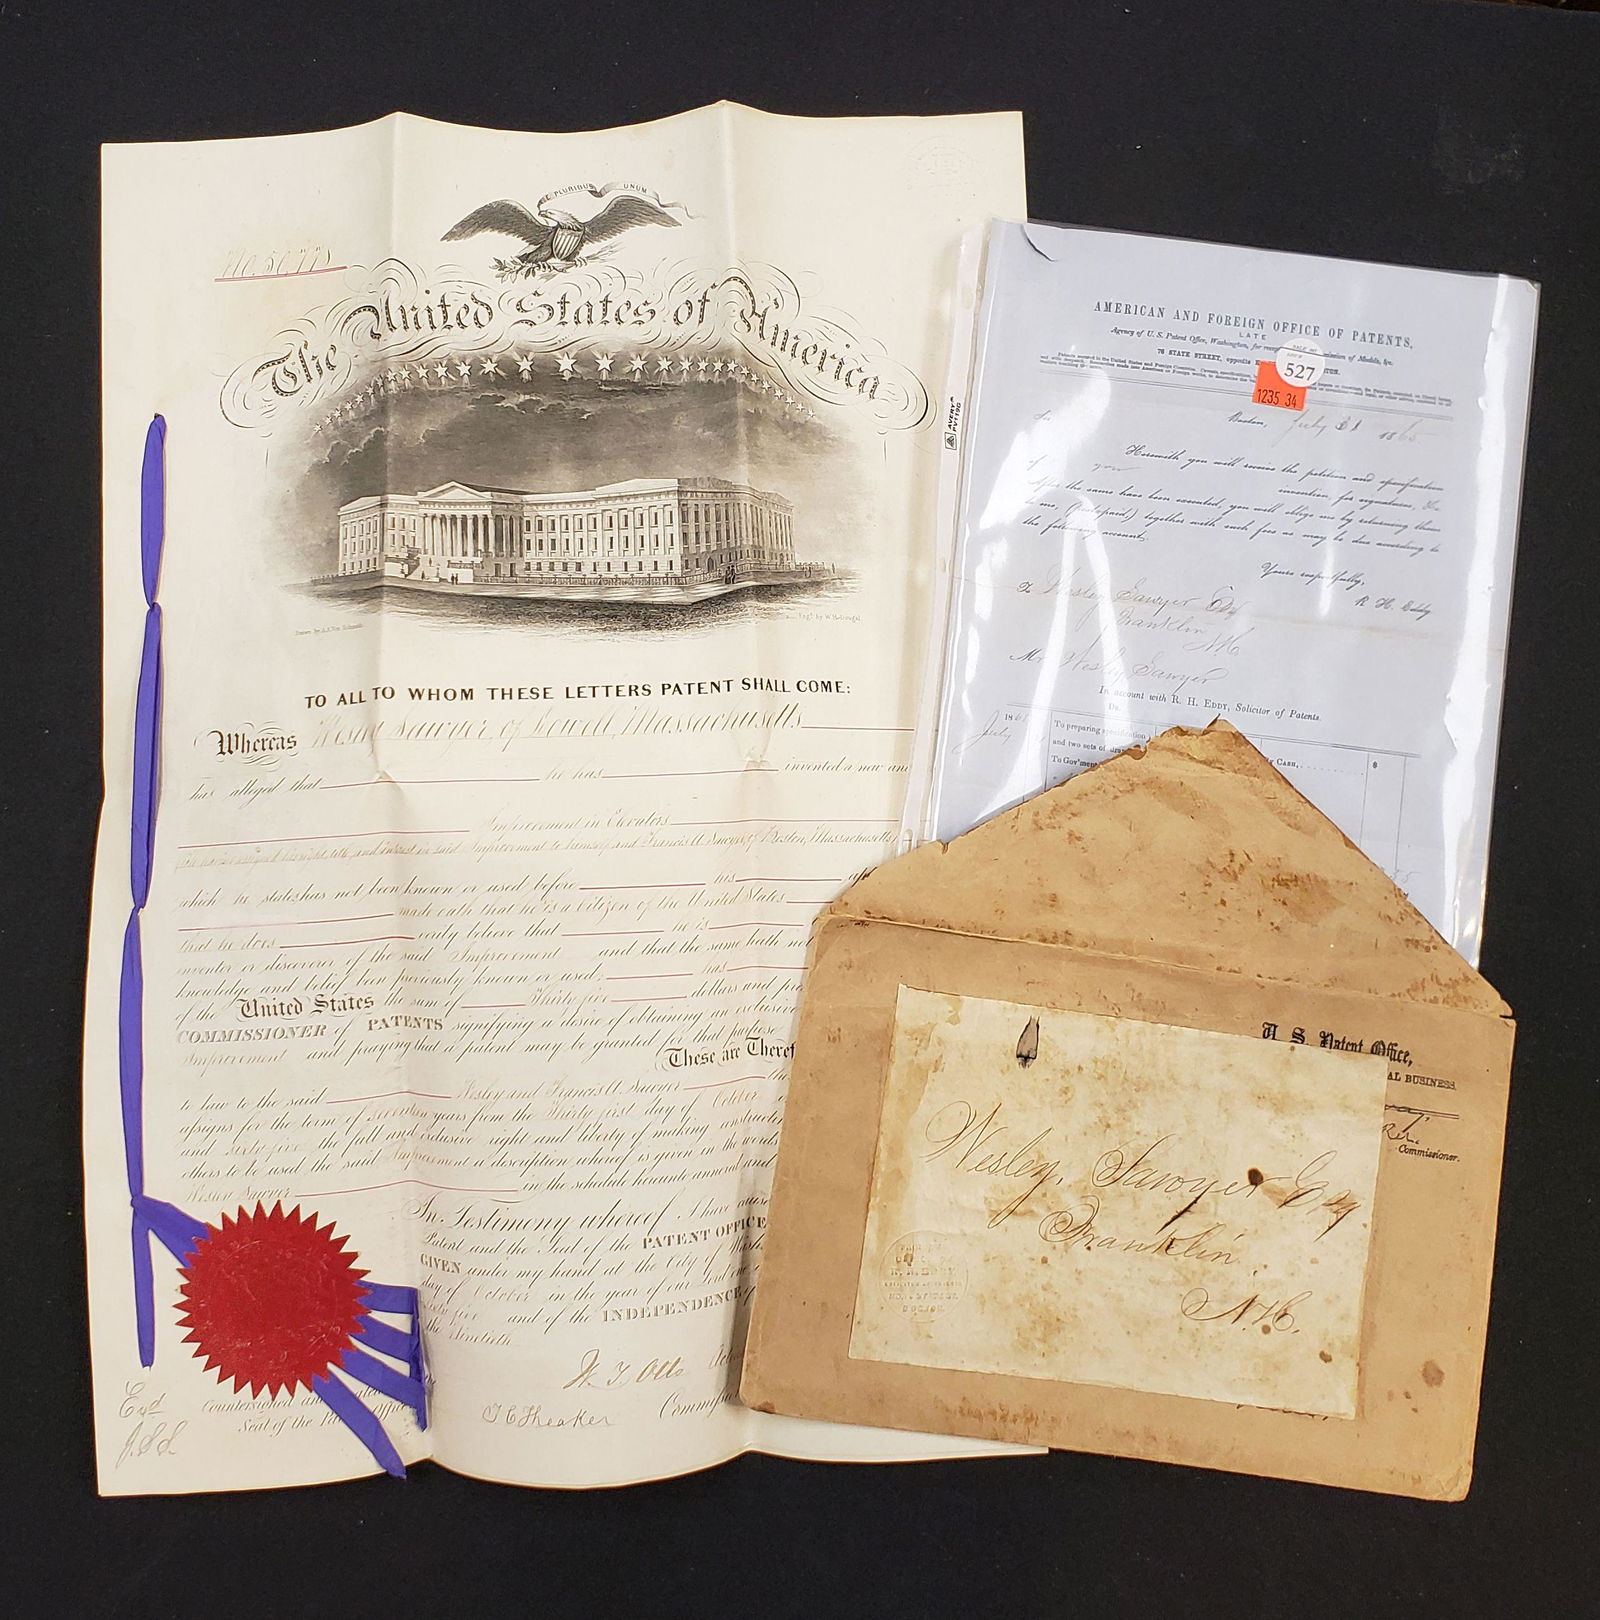 E PLURIBUS UNUM
The United States of America
TO ALL TO WHOM THESE LETTERS PATENT SHALL COME:
Whereas Wesley Sawyer of Lowell, Massachusetts
has alleged that he has invented a new and
Improvement in Elevators
(he having assigned his right, title and interest in said Improvement to himself and Francis A. Sawyer, of Boston, Massachusetts)
which he states has not been known or used before his
made oath that he is a Citizen of the United States
that he does verily believe that he is
inventor or discoverer of the said Improvement and that the same hath not
knowledge and belief been previously known or used; has
of the United States the sum of Thirty five dollars and
COMMISSIONER of PATENTS signifying a desire of obtaining an exclusive
Improvement and praying that a patent may be granted for that purpose
These are Theref
to law to the said Wesley and Francis A. Sawyer
assigns for the term of seventeen years from the Thirty first day of October
and sixty five the full and exclusive right and liberty of making constructin
others to be used the said Improvement a description whereof is given in the words
Wesley Sawyer in the schedule hereunto annexed and
In Testimony whereof I have cause
Patent and the Seal of the PATENT OFFICE
GIVEN under my hand at the City of Wash
day of October in the year of our Lord one
sixty five and of the INDEPENDENCE
the Ninetieth.
W. T. Otto
Countersigned and
Seal of the
T C Theaker Commiss
Exd
AVERY
PV119D
AMERICAN AND FOREIGN OFFICE OF PATENTS,
LATE
Agency of U. S. Patent Office, Washington, for
of Models, &c.
76 STATE STREET, opposite
527
1235 34
Sir Boston, July 31 1865
Herewith you will receive the petition and specification
of your invention for signatures, &c.
After the same have been executed, you will oblige me by returning them
to me, (postpaid,) together with such fees as may be due according to
the following account.
Yours respectfully,
R. H. Eddy
To Wesley Sawyer Esq
Franklin
N.H.
Mr. Wesley Sawyer
In account with R. H. EDDY, Solicitor of Patents.
Dr.
1865
July
To preparing specification
and two sets of
To Gov'ment
By CASH, $
U. S. Patent Office,
AL BUSINESS
Commissioner.
Wesley Sawyer Esq
Franklin
N.H.
R. H. EDDY
BOSTON